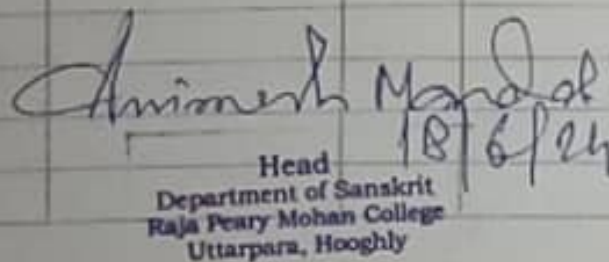 Animesh Mondal
18/6/24
Head
Department of Sanskrit
Raja Peary Mohan College
Uttarpara, Hooghly